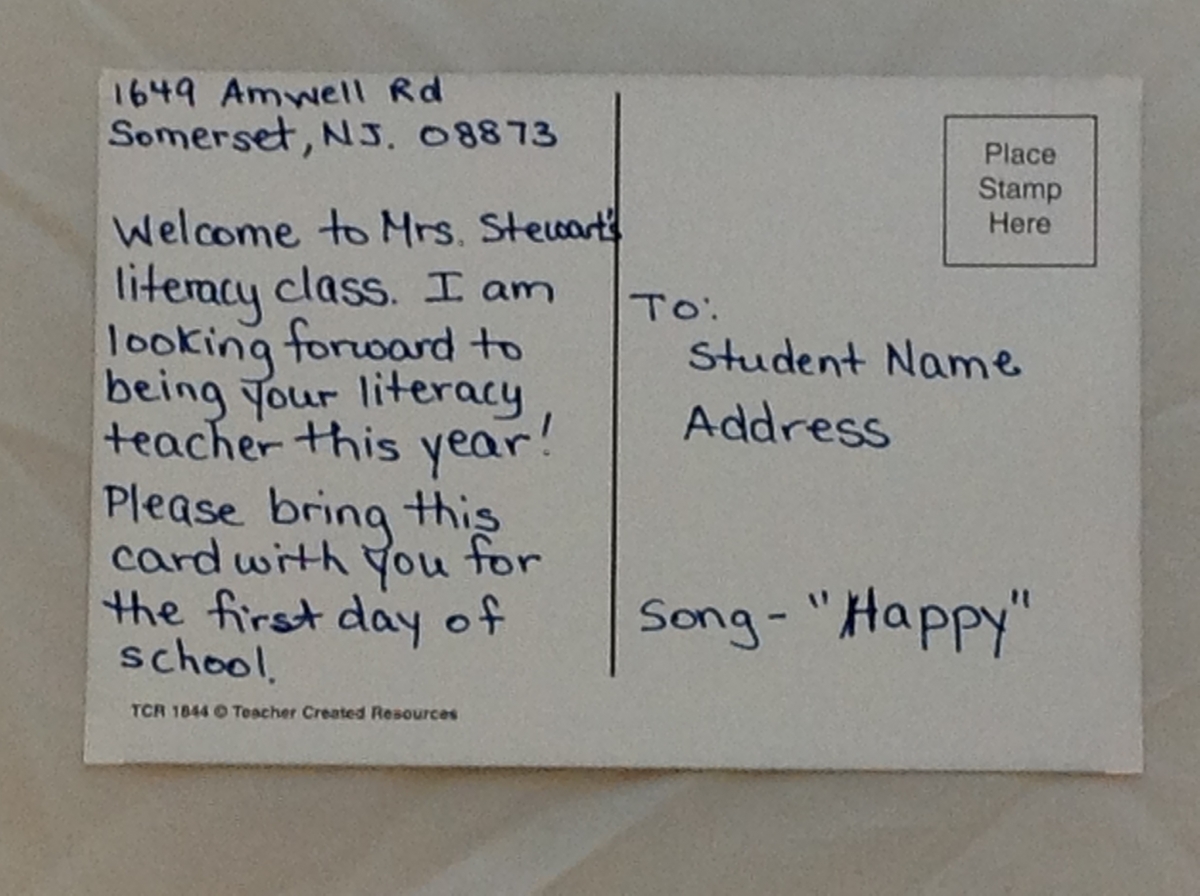 1649 Amwell Rd
Somerset, NJ. 08873
Welcome to Mrs. Stewart's
literacy class. I am
looking forward to
being your literacy
teacher this year!
Please bring this
card with you for
the first day of
school.
TCR 1844 © Teacher Created Resources
Place
Stamp
Here
To:
Student Name
Address
Song - "Happy"